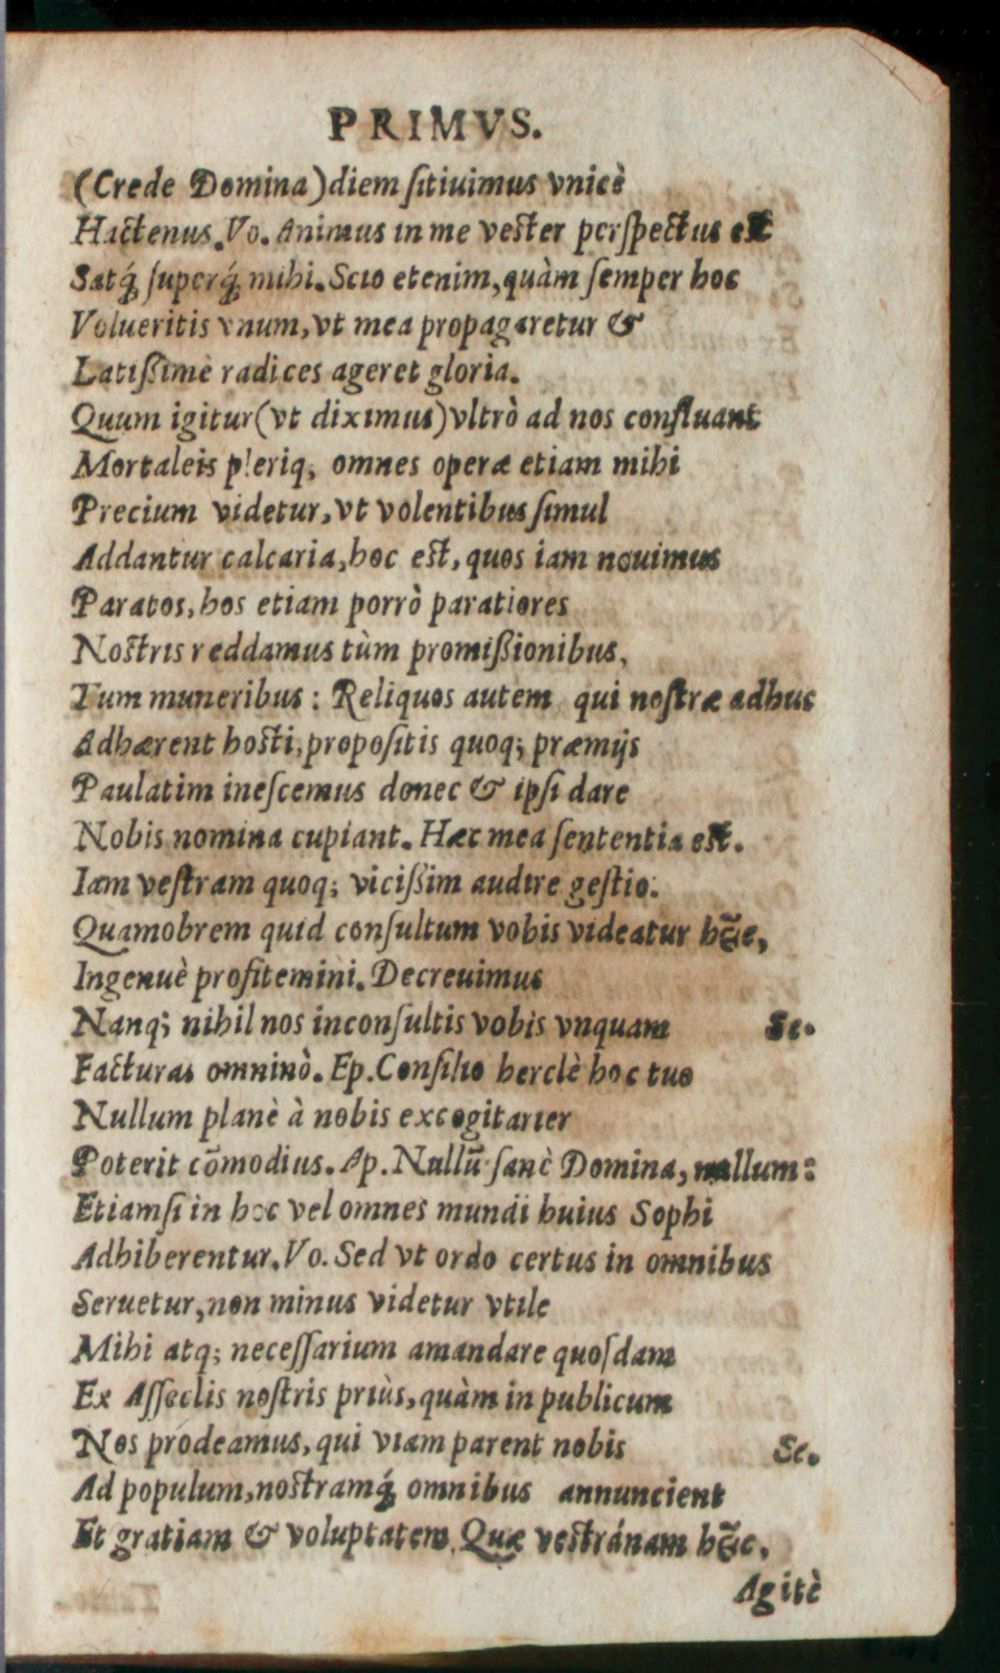 PRIMVS.
(Crede Domina) diem ſitiuimus vnicè
Hactenus. Vo. Animus in me veſter perſpectus eſt
Satq́; ſuperq́; mihi. Scio etenim, quàm ſemper hoc
Volueritis vnum, vt mea propagaretur &
Latiſsimè radices ageret gloria.
Quum igitur (vt diximus) vltrò ad nos confluant
Mortaleis pleriq; omnes operæ etiam mihi
Precium videtur, vt volentibus ſimul
Addantur calcaria, hoc eſt, quos iam nouimus
Paratos, hos etiam porrò paratiores
Noſtris reddamus tùm promiſsionibus,
Tum muneribus: Reliquos autem qui noſtræ adhuc
Adhærent hoſti, propoſitis quoq; præmijs
Paulatim ineſcemus donec & ipſi dare
Nobis nomina cupiant. Hæc mea ſententia eſt.
Iam veſtram quoq; viciſsim audire geſtio:
Quamobrem quid conſultum vobis videatur
Ingenuè profitemini. Decreuimus
Nanq; nihil nos inconſultis vobis vnquam Sc.
Facturas omninò. Ep. Conſilio herclè hoc tuo
Nullum planè à nobis excogitarier
Poterit cōmodius. Ap. Nullū ſanè Domina, nullum:
Etiamſi in hoc vel omnes mundi huius Sophi
Adhiberentur. Vo. Sed vt ordo certus in omnibus
Seruetur, non minus videtur vtile
Mihi atq; neceſſarium amandare quoſdam
Ex Aſſeclis noſtris priùs, quàm in publicum
Nos prodeamus, qui viam parent nobis Sc.
Ad populum, noſtramq́; omnibus annuncient
Et gratiam & voluptatem. Quæ veſtránam
Agitè